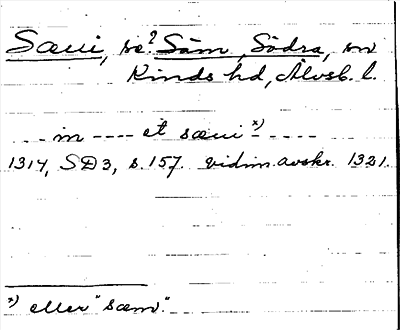 Sæui, se? Säm, Södra, sn
Kinds hd, Älvsb. l.
---in----et sæui x)----
1314, SD3, s. 157. vidim. avskr. 1321.
x) eller "sæm".